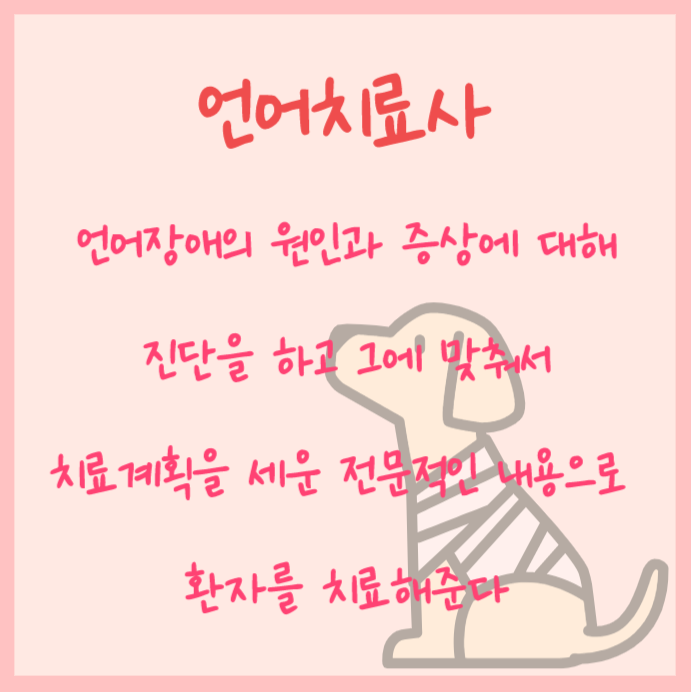 언어치료사
언어장애의 원인과 증상에 대해
진단을 하고 그에 맞춰서
치료계획을 세운 전문적인 내용으로
환자를 치료해준다